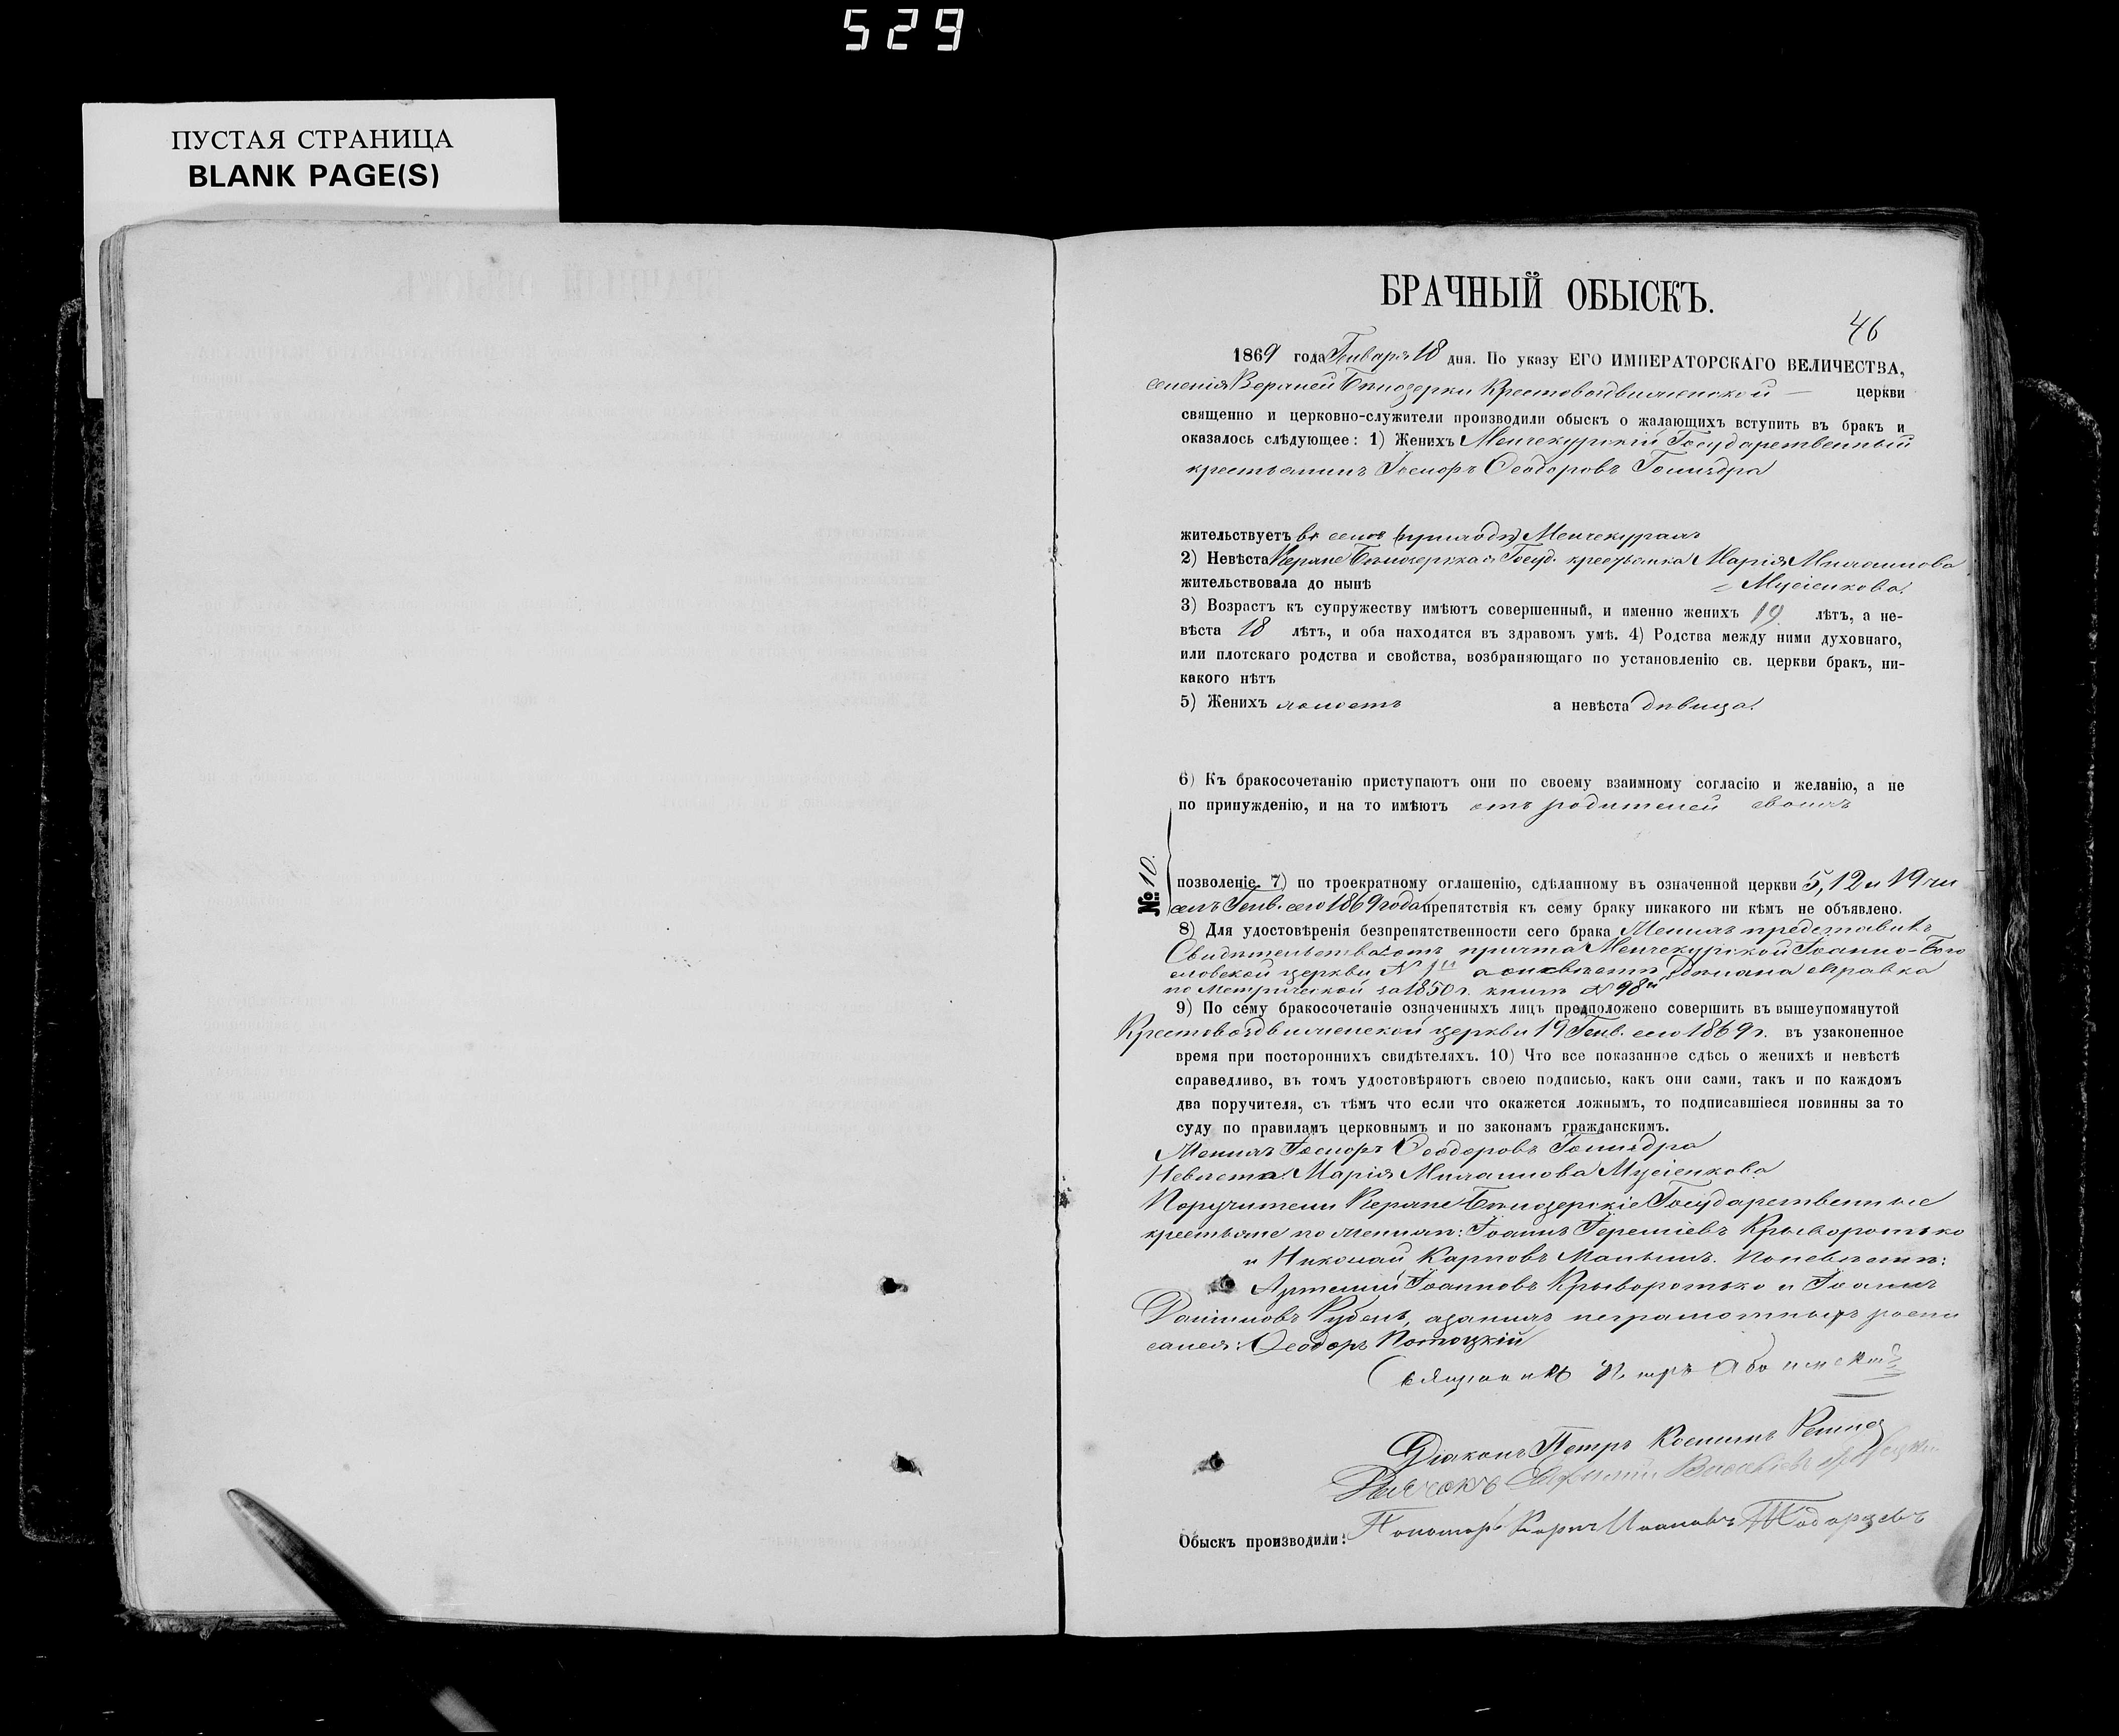 529
ПУСТАЯ СТРАНИЦА
BLANK PAGE(S)
БРАЧНЫЙ ОБЫСКЪ.
46
1869 года Генваря 18 дня. По указу ЕГО ИМПЕРАТОРСКАГО ВЕЛИЧЕСТВА,
селенія Верхней Бѣлозерки Крестовоздвиженской церкви
священно и церковно-служители производили обыскъ о жалающихъ вступить въ бракъ и
оказалось слѣдующее: 1) Женихъ Менчекурскій Государственный
крестьянинъ Іосифъ Ѳеодоровъ
жительствуетъ въ селѣ Менчекурахъ
2) Невѣста Верхне Бѣлозерская Госуд. крестьянка Марія Михаилова
жительствовала до нынѣ Мусіенкова.
3) Возрастъ къ супружеству имѣютъ совершенный, и именно женихъ 19 лѣтъ, а не-
вѣста 18 лѣтъ, и оба находятся въ здравомъ умѣ. 4) Родства между ними духовнаго,
или плотскаго родства и свойства, возбраняющаго по установленію св. церкви бракъ, ни-
какого нѣтъ
5) Женихъ холостъ а невѣста дѣвица.
6) Къ бракосочетанію приступаютъ они по своему взаимному согласію и желанію, а не
по принужденію, и на то имѣютъ отъ родителей своихъ
№ 10.
позволеніе. 7) по троекратному оглашенію, сдѣланному въ означенной церкви 5, 12 и 19 чи
селъ Генв. сего 1869 года препятствія къ сему браку никакого ни кѣмъ не объявлено.
8) Для удостовѣренія безпрепятственности сего брака Женихъ представилъ
Свидѣтельство отъ причта Менчекурской Іоанно-Бого
словской церкви № а о невѣстѣ сдѣлана справка
по Метрической за 1850 г. книгѣ № 98й
9) По сему бракосочетаніе означенныхъ лицъ предположено совершить въ вышеупомянутой
Крестовоздвиженской церкви 19 Генв. сего 1869 г. въ узаконенное
время при постороннихъ свидѣтеляхъ. 10) Что все показанное сдѣсь о женихѣ и невѣстѣ
справедливо, въ томъ удостовѣряютъ своею подписью, какъ они сами, такъ и по каждомъ
два поручителя, съ тѣмъ что если что окажется ложнымъ, то подписавшіеся повинны за то
суду по правиламъ церковнымъ и по законамъ гражданскимъ.
Женихъ Іосифъ Ѳеодоровъ
Невѣста Марія Михаилова Мусіенкова
Поручители Верхне Бѣлозерскіе Государственные
крестьяне по женихѣ: Іоаннъ Іереміевъ Крыворотько
и Николай Карповъ По невѣстѣ:
Артемій Іоанновъ Крыворотько и Іоаннъ
Даніиловъ а за нихъ неграмотныхъ роспи
сался: Ѳеодоръ Потоцкій
Священникъ Петръ
Діаконъ Петръ Косьминъ
Дьячокъ
Обыскъ производили: Пономарь